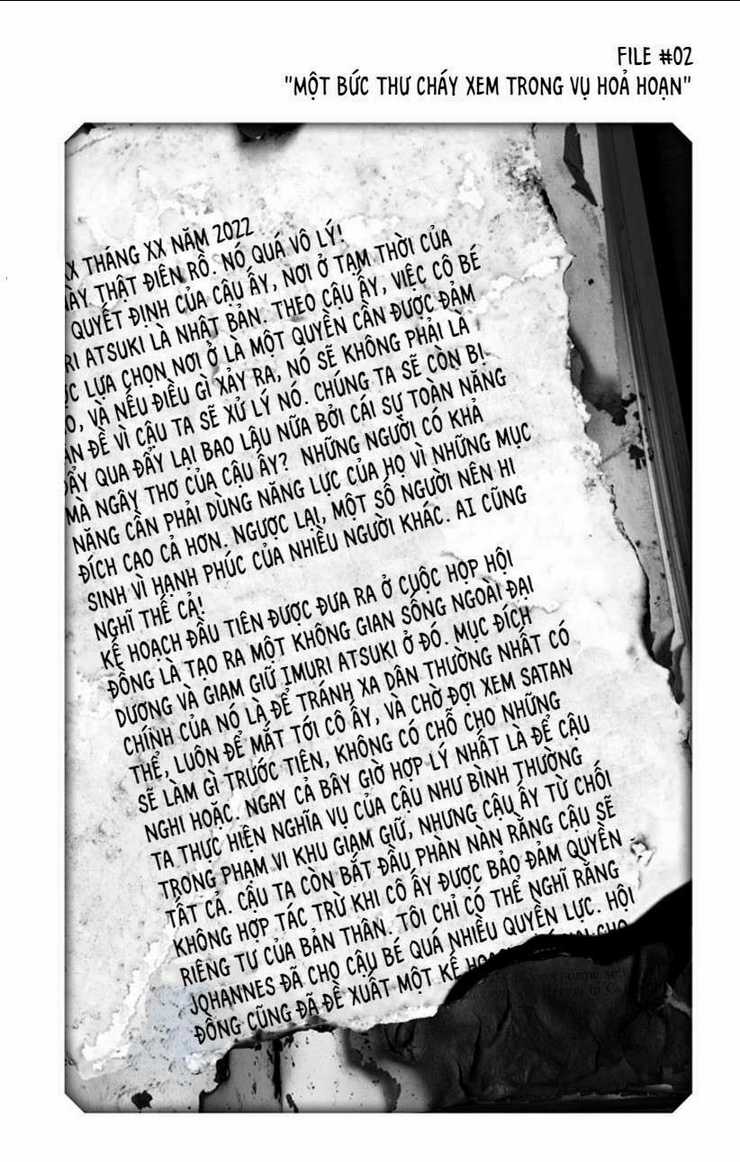 FILE #02
"MỘT BỨC THƯ CHÁY XEM TRONG VỤ HOẢ HOẠN"
XX THÁNG XX NĂM 2022
ÀY THẬT ĐIÊN RỒ. NÓ QUÁ VÔ LÝ!
QUYẾT ĐỊNH CỦA CẬU ẤY, NƠI Ở TẠM THỜI CỦA
RI ATSUKI LÀ NHẬT BẢN. THEO CẬU ẤY, VIỆC CÔ BÉ
ỢC LỰA CHỌN NƠI Ở LÀ MỘT QUYỀN CẦN ĐƯỢC ĐẢM
O, VÀ NẾU ĐIỀU GÌ XẢY RA, NÓ SẼ KHÔNG PHẢI LÀ
ẤN ĐỀ VÌ CẬU TA SẼ XỬ LÝ NÓ. CHÚNG TA SẼ CÒN BỊ
ĐẨY QUA ĐẨY LẠI BAO LÂU NỮA BỞI CÁI SỰ TOÀN NĂNG
MÀ NGÂY THƠ CỦA CẬU ẤY? NHỮNG NGƯỜI CÓ KHẢ
NĂNG CẦN PHẢI DÙNG NĂNG LỰC CỦA HỌ VÌ NHỮNG MỤC
ĐÍCH CAO CẢ HƠN. NGƯỢC LẠI, MỘT SỐ NGƯỜI NÊN HI
SINH VÌ HẠNH PHÚC CỦA NHIỀU NGƯỜI KHÁC. AI CŨNG
NGHĨ THẾ CẢ!
KẾ HOẠCH ĐẦU TIÊN ĐƯỢC ĐƯA RA Ở CUỘC HỌP HỘI
ĐỒNG LÀ TẠO RA MỘT KHÔNG GIAN SỐNG NGOÀI ĐẠI
DƯƠNG VÀ GIAM GIỮ IMURI ATSUKI Ở ĐÓ. MỤC ĐÍCH
CHÍNH CỦA NÓ LÀ ĐỂ TRÁNH XA DÂN THƯỜNG NHẤT CÓ
THỂ, LUÔN ĐỂ MẮT TỚI CÔ ẤY, VÀ CHỜ ĐỢI XEM SATAN
SẼ LÀM GÌ TRƯỚC TIÊN, KHÔNG CÓ CHỖ CHO NHỮNG
NGHI HOẶC. NGAY CẢ BÂY GIỜ HỢP LÝ NHẤT LÀ ĐỂ CẬU
TA THỰC HIỆN NGHĨA VỤ CỦA CẬU NHƯ BÌNH THƯỜNG
TRONG PHẠM VI KHU GIAM GIỮ, NHƯNG CẬU ẤY TỪ CHỐI
TẤT CẢ. CẬU TA CÒN BẮT ĐẦU PHÀN NÀN RẰNG CẬU SẼ
KHÔNG HỢP TÁC TRỪ KHI CÔ ẤY ĐƯỢC BẢO ĐẢM QUYỀN
RIÊNG TƯ CỦA BẢN THÂN. TÔI CHỈ CÓ THỂ NGHĨ RẰNG
JOHANNES ĐÃ CHO CẬU BÉ QUÁ NHIỀU QUYỀN LỰC. HỘI
ĐỒNG CŨNG ĐÃ ĐỀ XUẤT MỘT KẾ